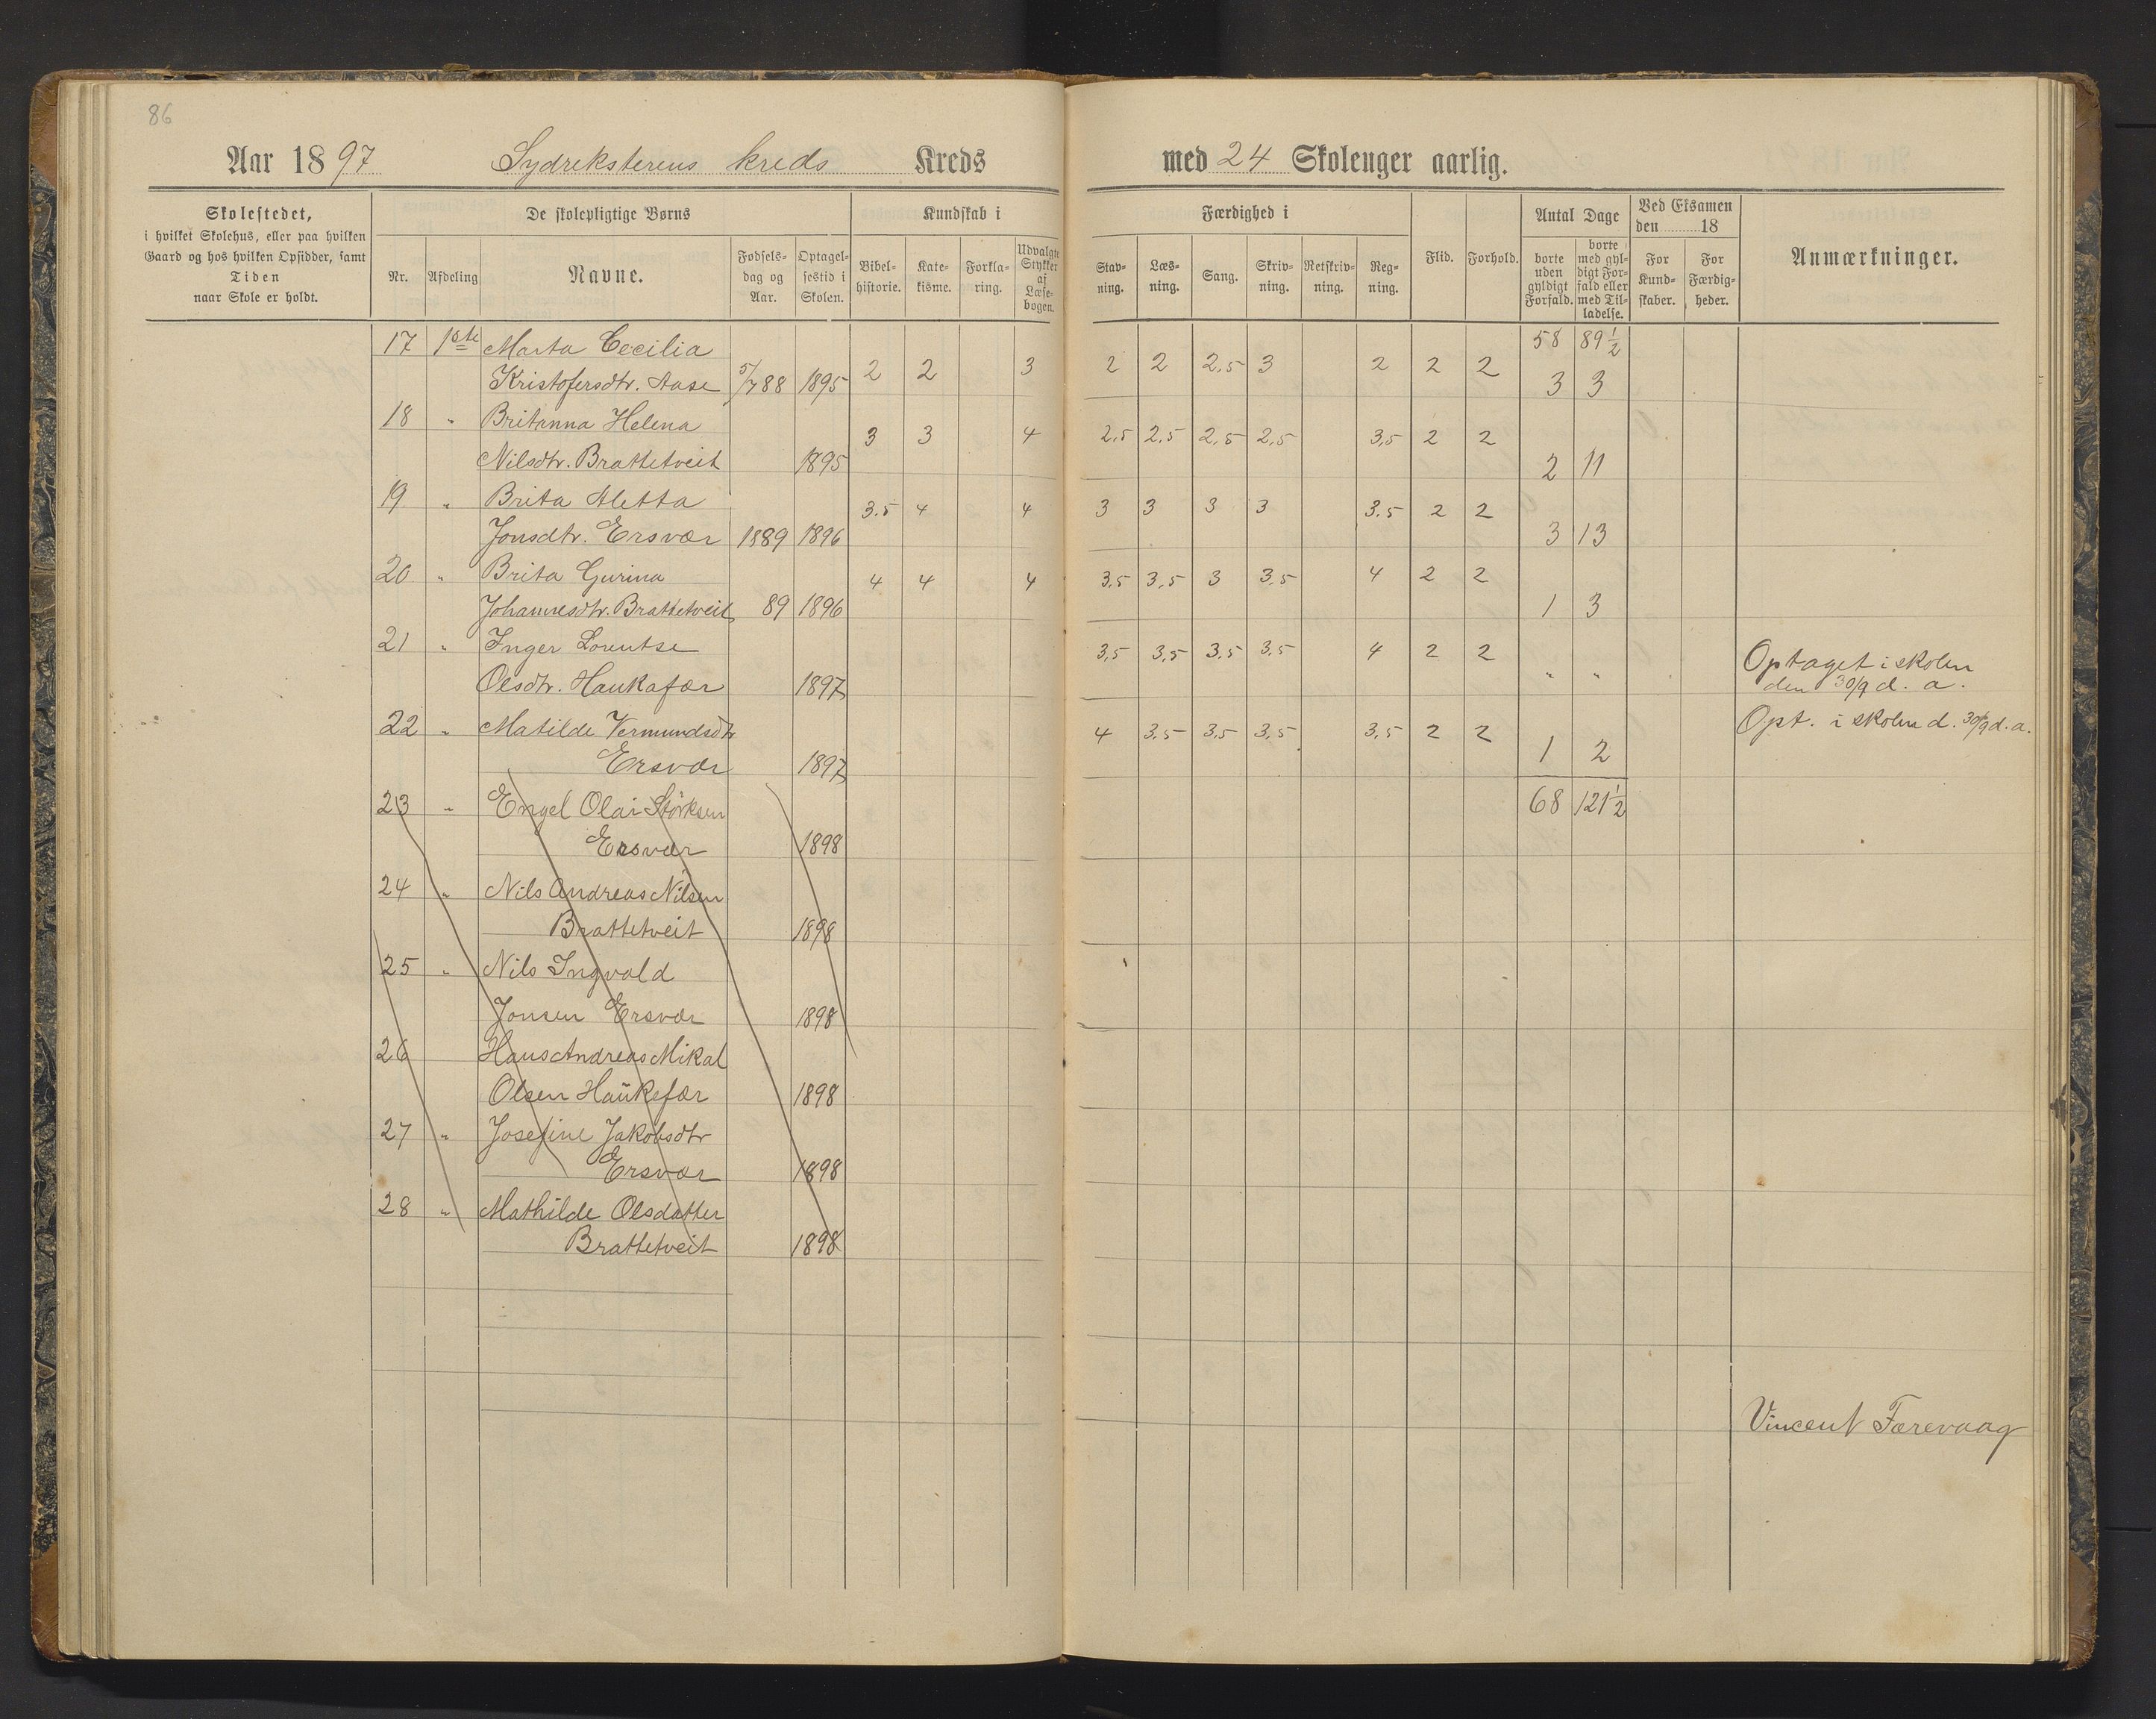 86
Aar 1897 Sydreksterens kreds Kreds med 24 Skoleuger aarlig.
Skolestedet,
i hvilket Skolehus, eller paa hvilken
Gaard og hos hvilken Opsidder, samt
Tiden
naar Skole er holdt.
De skolepligtige Børns
Nr. Afdeling Navne. Fødsels-dag og Aar. Optagel-sestid i Skolen.
Kundskab i
Bibel-historie. Kate-kisme. Forkla-ring. Udvalgte Stykker af Læse-bogen.
Færdighed i
Stav-ning. Læs-ning. Sang. Skriv-ning. Retskriv-ning. Reg-ning.
Flid. Forhold.
Antal Dage
borte uden gyldigt Forfald. borte med gyl-digt For-fald eller med Til-ladelse.
Ved Eksamen den 18
For Kund-skaber. For Færdig-heder.
Anmærkninger.
58 89 1/2
17 1ste Marta Cecilia
Kristofersdtr. Aase 5/7 88 1895 2 2 3 2 2 2,5 3 2 2 2 3 3
18 " Britanna Helena
Nilsdtr. Brattetveit 1895 3 3 4 2,5 2,5 2,5 2,5 3,5 2 2 2 11
19 " Brita Aletta
Jonsdtr. Ersvær 1889 1896 3.5 4 4 3 3 3 3 3.5 2 2 3 13
20 " Brita Gurina
Johannesdtr. Brattetveit 89 1896 4 4 4 3,5 3,5 3 3,5 4 2 2 1 3
21 " Inger Lorentse
Olsdtr. Haukafær 1897 3,5 3,5 3,5 3,5 4 2 2 " " Optaget i skolen
den 30/9 d. a.
22 " Matilde Vermundsdtr
Ersvær 1897 4 3,5 3,5 3,5 3,5 2 2 1 2 Opt. i skolen d. 30/9 d. a.
68 121 1/2
23 " Engel Olai Størksen
Ersvær 1898
24 " Nils Andreas Nilsen
Brattetveit 1898
25 " Nils Ingvald
Jonsen Ersvær 1898
26 Hans Andreas Mikal
Olsen Haukefær 1898
27 " Josefine Jakobsdtr
Ersvær 1898
28 " Mathilde Olsdatter
Brattetveit 1898
Vincent Færevaag